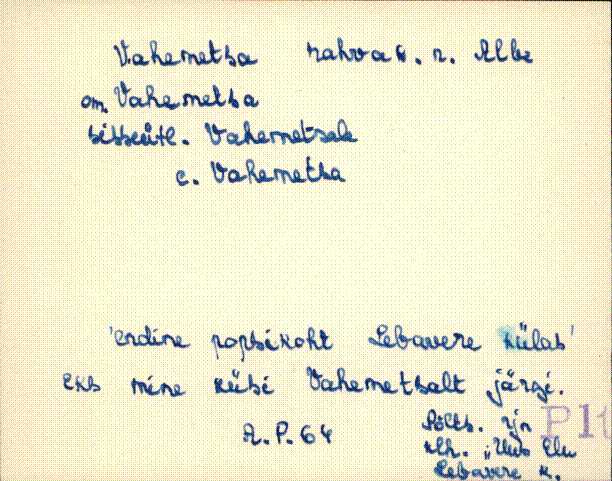 Vahemetsa rahvak. n. Albe
om. Vahemetsa
sisseütl. Vahemetsale
c. Vahemetsa
'endine popsikoht Lebavere külas'
eks mine küsi Vahemetsalt järgi.
A.P. 64
Põlts. rjn
klh. „Uus Elu
Lebavere k.
Plt